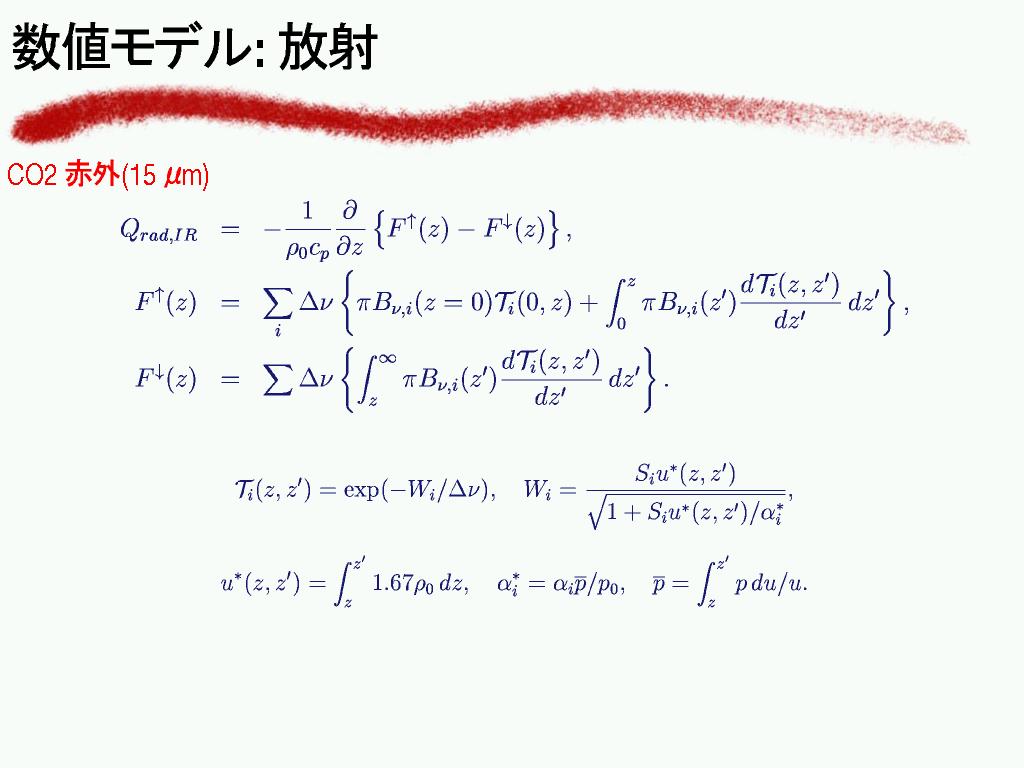 数値モデル: 放射
CO2 赤外(15 μm)
$Q_{rad,IR} = -\frac{1}{\rho_0 c_p}\frac{\partial}{\partial z}\left\{F^{\uparrow}(z) - F^{\downarrow}(z)\right\},$
$F^{\uparrow}(z) = \sum_i \Delta\nu \left\{\pi B_{\nu,i}(z=0)\mathcal{T}_i(0,z) + \int_0^z \pi B_{\nu,i}(z')\frac{d\mathcal{T}_i(z,z')}{dz'}\,dz'\right\},$
$F^{\downarrow}(z) = \sum \Delta\nu \left\{\int_z^{\infty} \pi B_{\nu,i}(z')\frac{d\mathcal{T}_i(z,z')}{dz'}\,dz'\right\}.$
$\mathcal{T}_i(z,z') = \exp(-W_i/\Delta\nu), \quad W_i = \frac{S_i u^*(z,z')}{\sqrt{1 + S_i u^*(z,z')/\alpha_i^*}},$
$u^*(z,z') = \int_z^{z'} 1.67\rho_0\,dz, \quad \alpha_i^* = \alpha_i \overline{p}/p_0, \quad \overline{p} = \int_z^{z'} p\,du/u.$